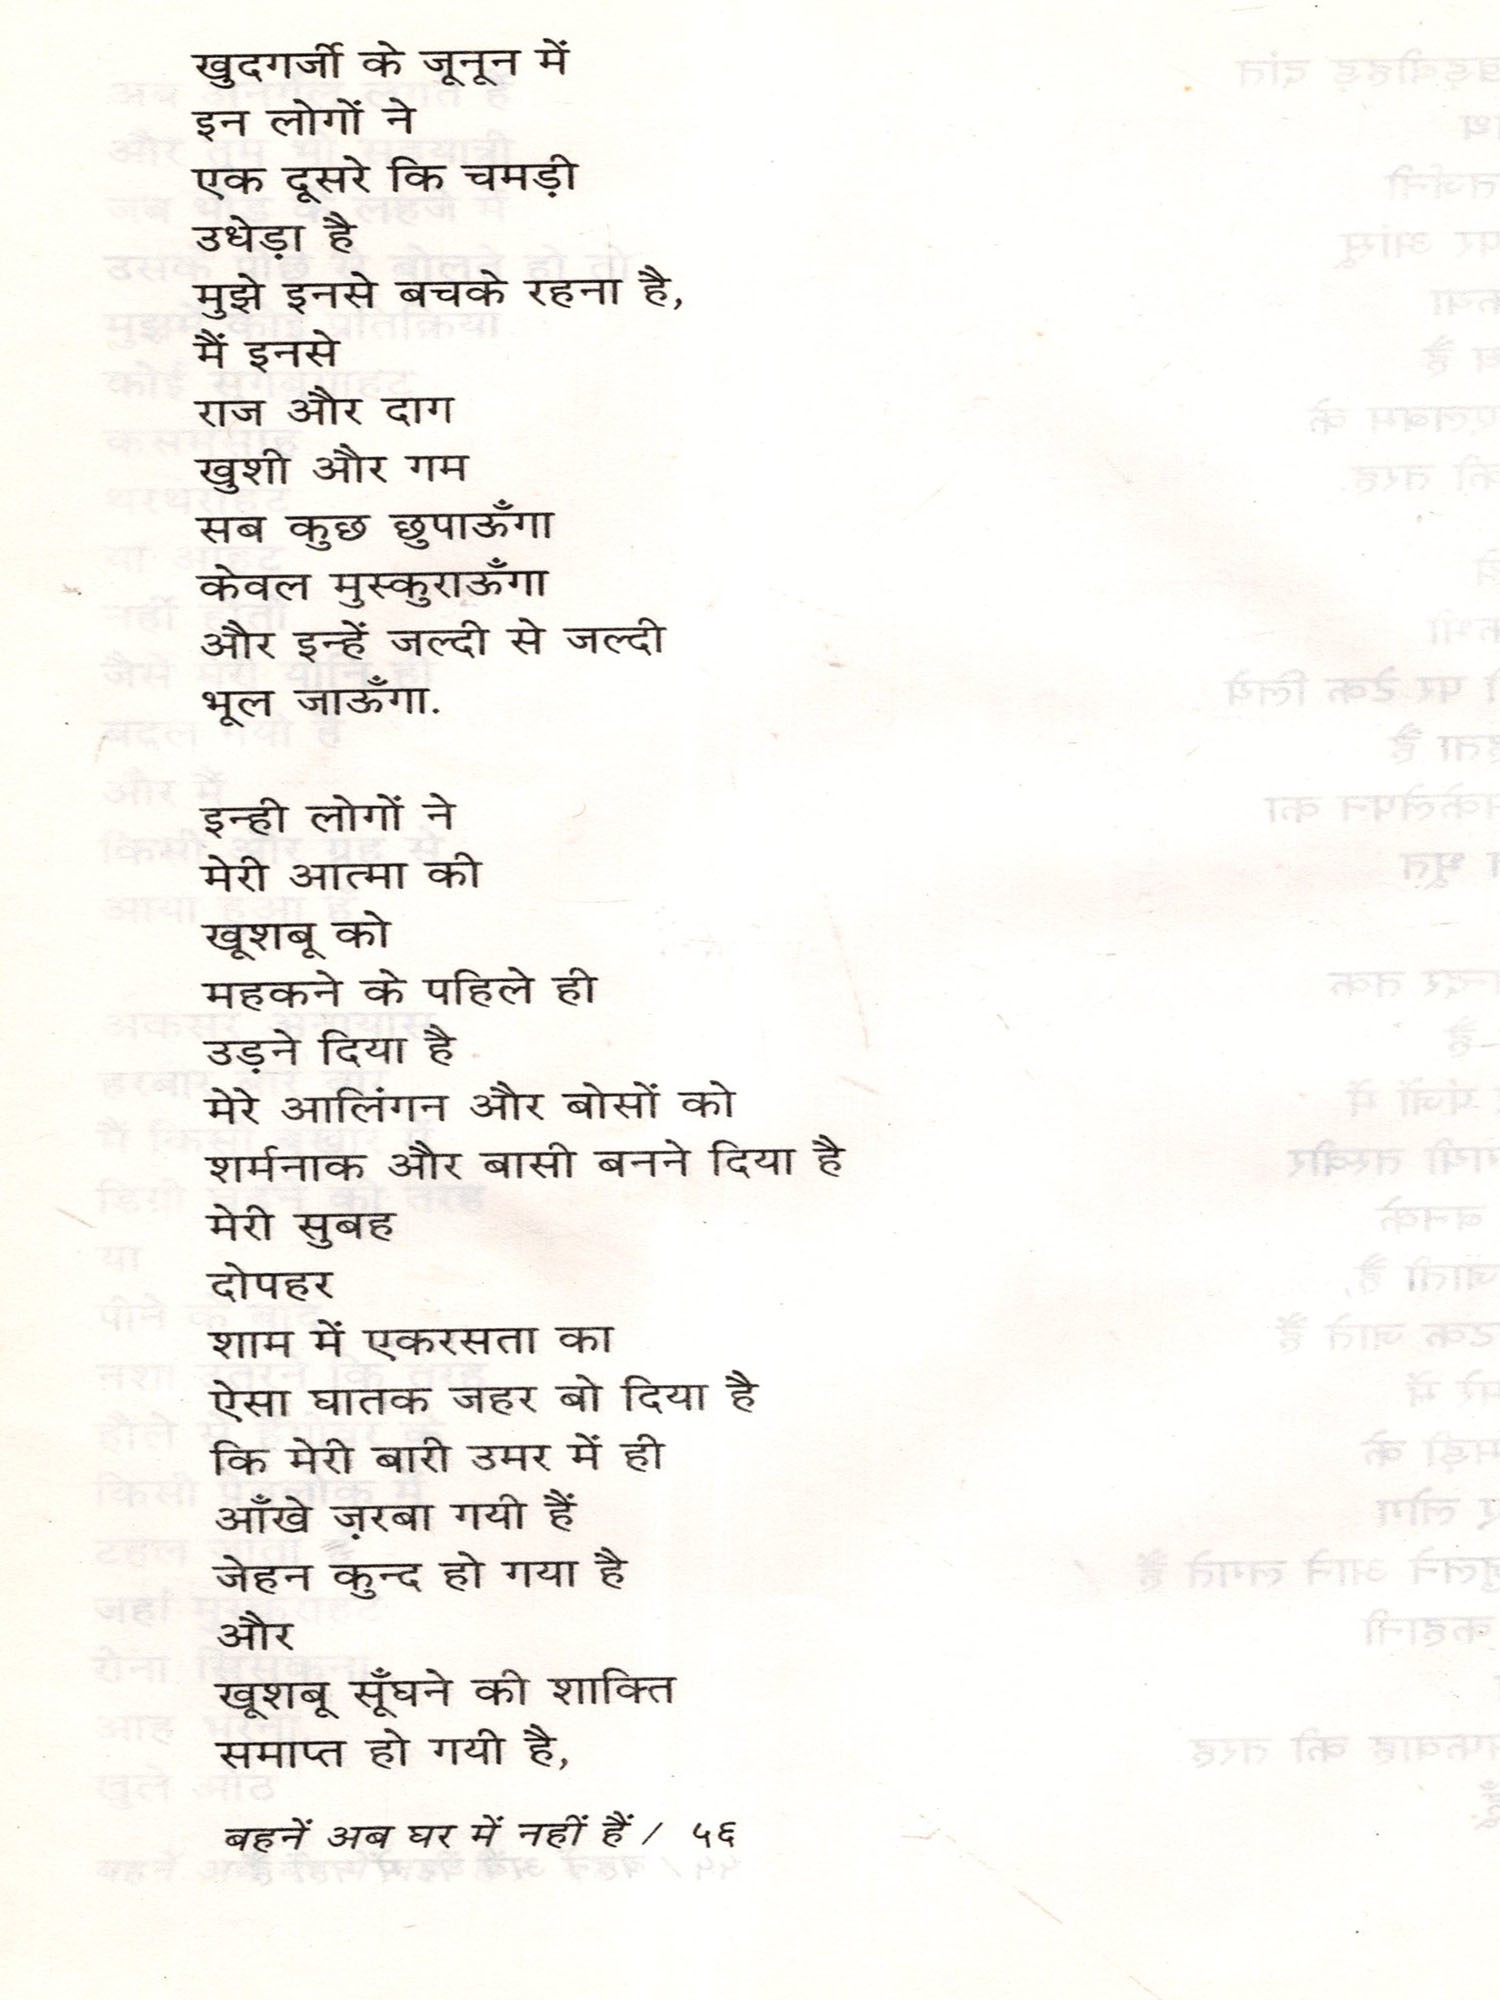 खुदगर्जी के जूनून में
इन लोगों ने
एक दूसरे कि चमड़ी
उधेड़ा है
मुझे इनसे बचके रहना है,
मैं इनसे
राज और दाग
खुशी और गम
सब कुछ छुपाऊँगा
केवल मुस्कुराऊँगा
और इन्हें जल्दी से जल्दी
भूल जाऊँगा.
इन्ही लोगों ने
मेरी आत्मा की
खूशबू को
महकने के पहिले ही
उड़ने दिया है
मेरे आलिंगन और बोसों को
शर्मनाक और बासी बनने दिया है
मेरी सुबह
दोपहर
शाम में एकरसता का
ऐसा घातक जहर बो दिया है
कि मेरी बारी उमर में ही
आँखे ज़रबा गयी हैं
जेहन कुन्द हो गया है
और
खूशबू सूँघने की शाक्ति
समाप्त हो गयी है,
बहनें अब घर में नहीं हैं / ५६